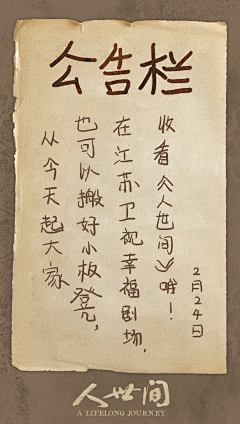 公告栏
从今天起大家
也可以搬好小板凳，
在江苏卫视幸福剧场，
收看《人世间》哦！
2月24日
人世间
A LIFELONG JOURNEY